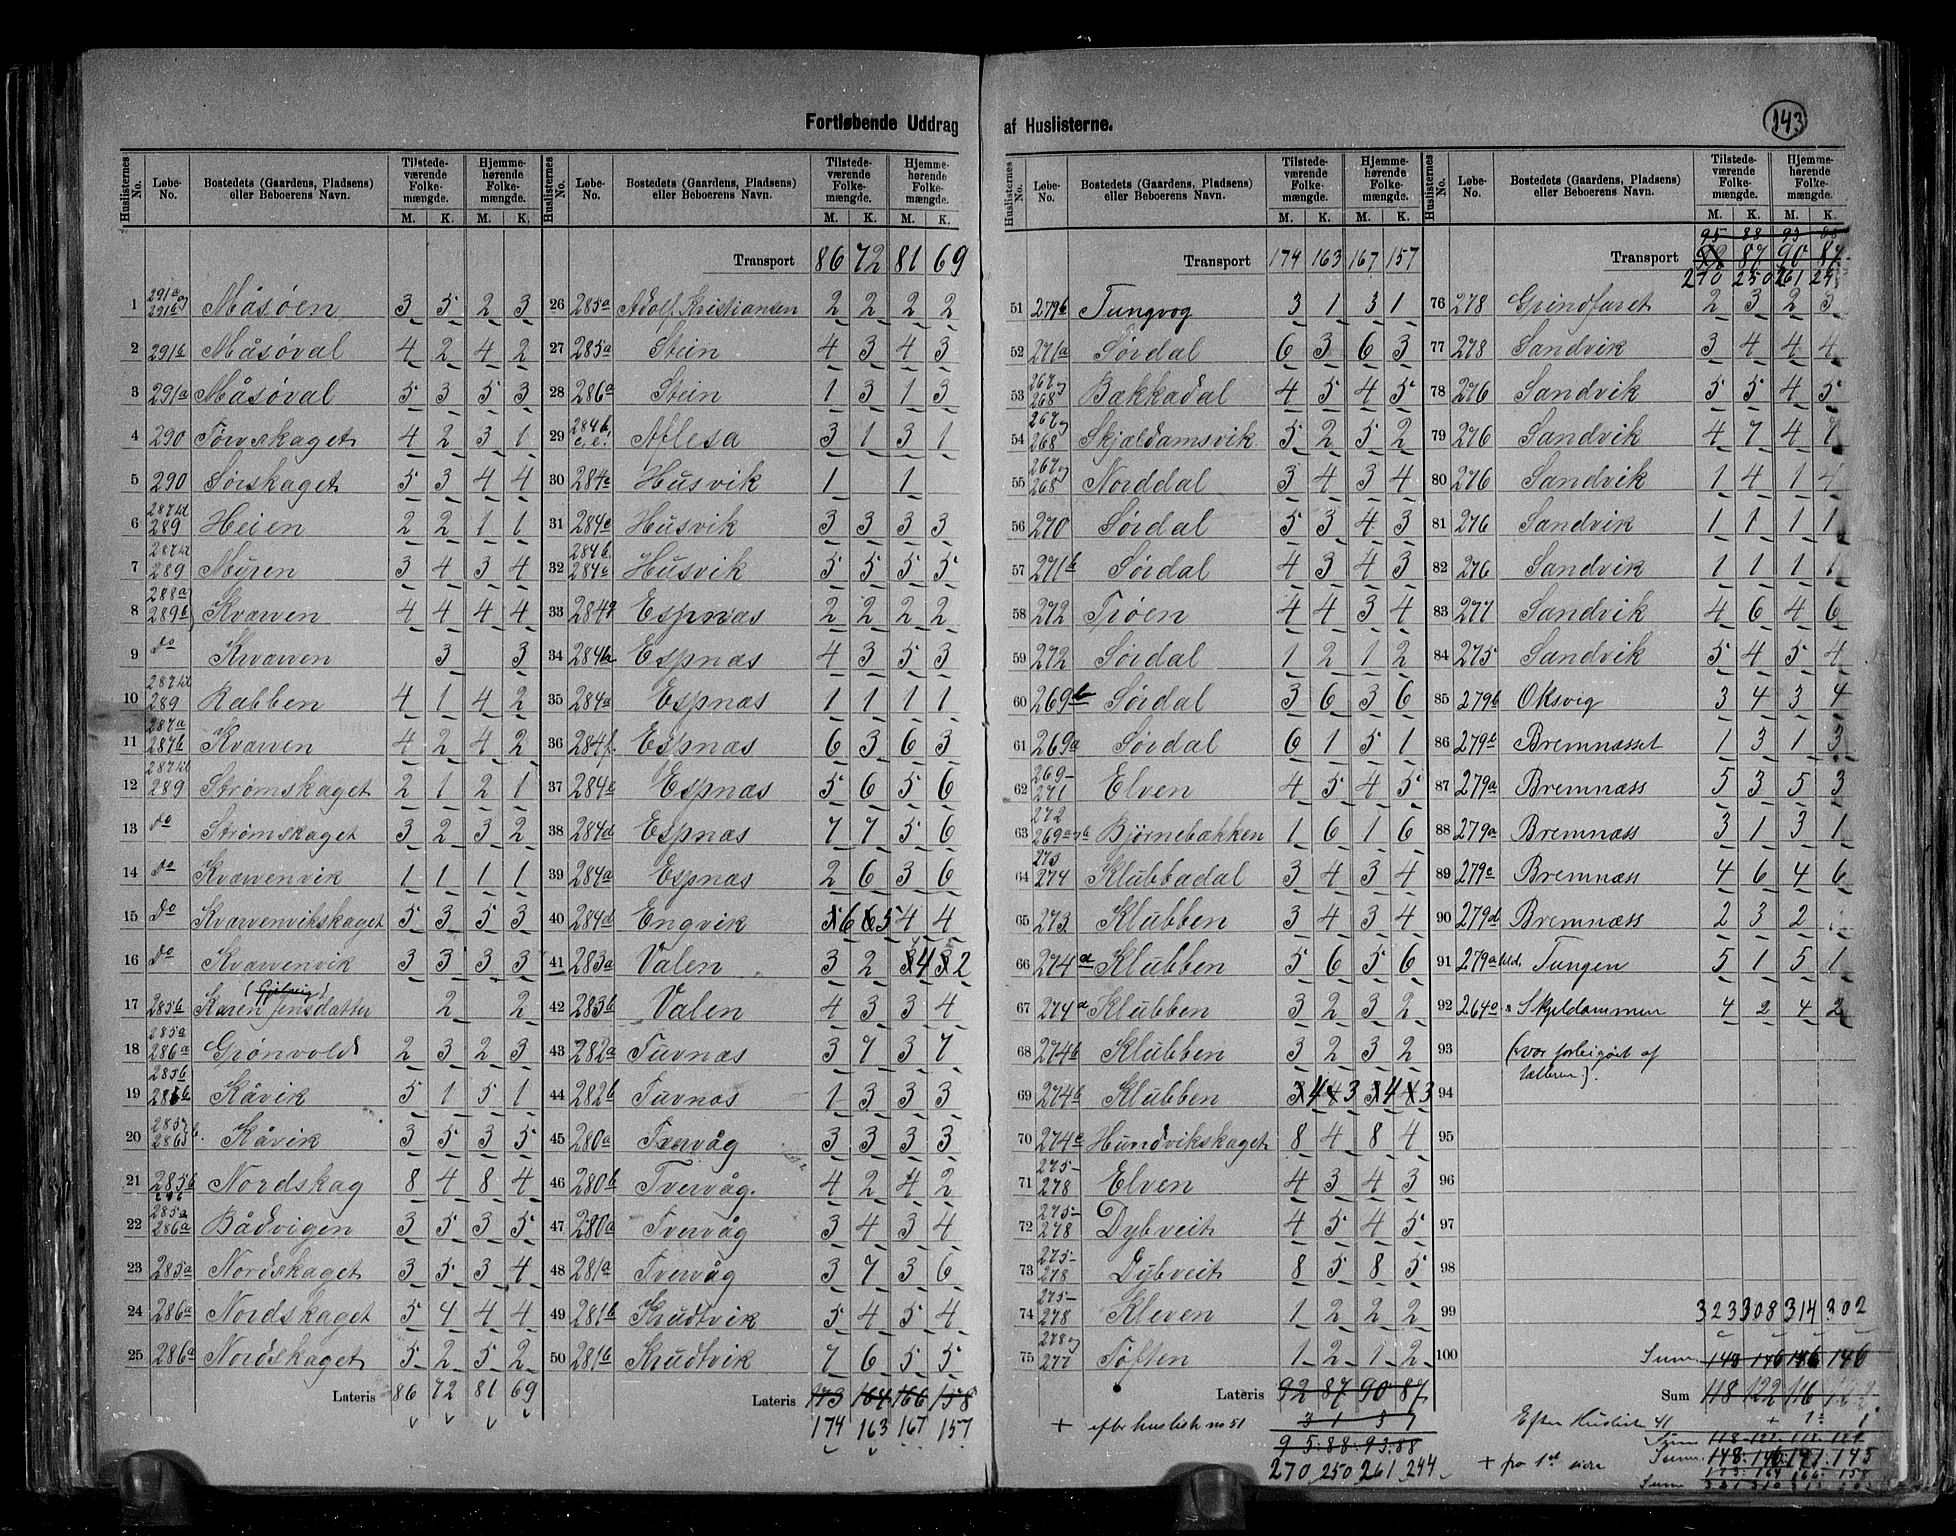 Fortløbende Uddrag af Huslisterne.
143
Huslisternes No. Løbe-No. Bostedets (Gaardens, Pladsens) eller Beboerens Navn. Tilstedeværende Folkemængde. M. K. Hjemmehørende Folkemængde. M. K.
1 291a og 291b Måsøen 3 5 2 3
2 291b Måsøval 4 2 4 2
3 291a Måsøval 5 3 5 3
4 290 Sørskaget 4 2 3 1
5 290 Sørskaget 5 3 4 4
6 289 Heien 2 2 1 1
7 289 Myren 3 4 3 4
8 288a 289b Kvawen 4 4 4 4
9 do Kvawen 3 3
10 289 Rabben 4 1 4 2
11 287a 287b Kvawen 4 2 4 2
12 289 Strømskaget 2 1 2 1
13 do Strømskaget 3 2 3 2
14 do Kvawenvik 1 1 1 1
15 do Kvawenvikskaget 5 3 5 3
16 do Kvawenvik 3 3 3 3
17 285b Karen Jensdatter 2 2
18 285a 286a Grønvold 2 3 2 3
19 285b Kåvik 5 1 5 1
20 Kåvik 3 5 3 5
21 285b Nordskag 8 4 8 4
22 285a 286a Bådvigen 3 5 3 5
23 285a Nordskaget 3 5 3 4
24 286a Nordskaget 5 4 4 4
25 286a Nordskaget 5 2 5 2
Lateris 86 72 81 69
Huslisternes No. Løbe-No. Bostedets (Gaardens, Pladsens) eller Beboerens Navn. Tilstedeværende Folkemængde. M. K. Hjemmehørende Folkemængde. M. K.
Transport 86 72 81 69
26 285a Adolf Kristiansen 2 2 2 2
27 285a Stein 4 3 4 3
28 286a Stein 1 3 1 3
29 284b Aflesa 3 1 3 1
30 284c Husvik 1 1
31 284c Husvik 3 3 3 3
32 284b 284c Husvik 5 5 5 5
33 Espnæs 2 2 2 2
34 Espnæs 4 3 5 3
35 284a Espnæs 1 1 1 1
36 284f Espnæs 6 3 6 3
37 284e Espnæs 5 6 5 6
38 284d Espnæs 7 7 5 6
39 284a Espnæs 2 6 3 6
40 284d Engvik 5 6 6 5 4 4
41 283a Valen 3 2 3 4 3 2
42 283b Valen 4 3 3 4
43 282a Turnæs 3 7 3 7
44 282b Turnæs 1 3 3 3
45 280a Tvervåg 3 3 3 3
46 280b Tvervåg. 4 2 4 2
47 280a Tvervåg 3 4 3 4
48 281a Tvervåg 3 7 3 6
49 281b Krudtvik 5 4 5 4
50 281b Krudtvik 7 6 5 5
Lateris 173 164 166 158
174 163 167 157
Huslisternes No. Løbe-No. Bostedets (Gaardens, Pladsens) eller Beboerens Navn. Tilstedeværende Folkemængde. M. K. Hjemmehørende Folkemængde. M. K.
Transport 174 163 167 157
51 279b Tungvog 3 1 3 1
52 271a Sørdal 6 3 6 3
53 267 og 268 Bakkadal 4 5 4 5
54 267 og 268 Skjældamsvik 5 2 5 2
55 267 og 268 Norddal 3 4 3 4
56 270 Sørdal 5 3 4 3
57 271b Sørdal 4 3 4 3
58 272 Trøen 4 4 3 4
59 272 Sørdal 1 2 1 2
60 269b Sørdal 3 6 3 6
61 269a Sørdal 6 1 5 1
62 269-271 Elven 4 5 4 5
63 272 269a Bjørnebækken 1 6 1 6
64 273 274 Klubbadal 3 4 3 4
65 273 Klubben 3 4 3 4
66 274d Klubben 5 6 5 6
67 274a Klubben 3 2 3 2
68 274b Klubben 3 2 3 2
69 274b Klubben 3 4 4 3 3 4 4 3
70 274c Hundvikskaget 8 4 8 4
71 275-278 Elven 4 3 4 3
72 275-278 Dybveit 4 5 4 5
73 275-278 Dybveit 8 5 8 5
74 275-278 Kleven 1 2 2 2
75 278 og 277 Tøften 1 2 1 2
Lateris 92 87 90 87
+ efter husliste no 51 3 1 3 1
95 88 93 88
270 250 261 244
Huslisternes No. Løbe-No. Bostedets (Gaardens, Pladsens) eller Beboerens Navn. Tilstedeværende Folkemængde. M. K. Hjemmehørende Folkemængde. M. K.
95 88 93 88
Transport 92 87 90 87
270 250 261 24
76 278 Grindfaret 2 3 2 3
77 278 Sandvik 3 4 4 4
78 276 Sandvik 5 5 4 5
79 276 Sandvik 4 7 4 7
80 276 Sandvik 1 4 1 4
81 276 Sandvik 1 1 1 1
82 276 Sandvik 1 1 1 1
83 277 Sandvik 4 6 4 6
84 275 Sandvik 5 4 5 4
85 279b Oksvig 3 4 3 4
86 Bremnæsset 1 3 1 3
87 279a Bremnæss 5 3 5 3
88 279a Bremnæss 3 1 3 1
89 279c Bremnæss 4 6 4 6
90 279d Bremnæss 2 3 2
91 279a Tungen 5 1 5 1
92 264a Skjeldammen 4 2 4 2
93 (var forbigået af
tælleren).
94
95
96
97
98
99 323 308 314 302
100 Sum 143 146 146 146
Sum 118 122 116 122
Efter Husliste 41 + 1 1
Sum
+ fra 1st side Sum 148 146 147 145
173 164 166 158
Sum